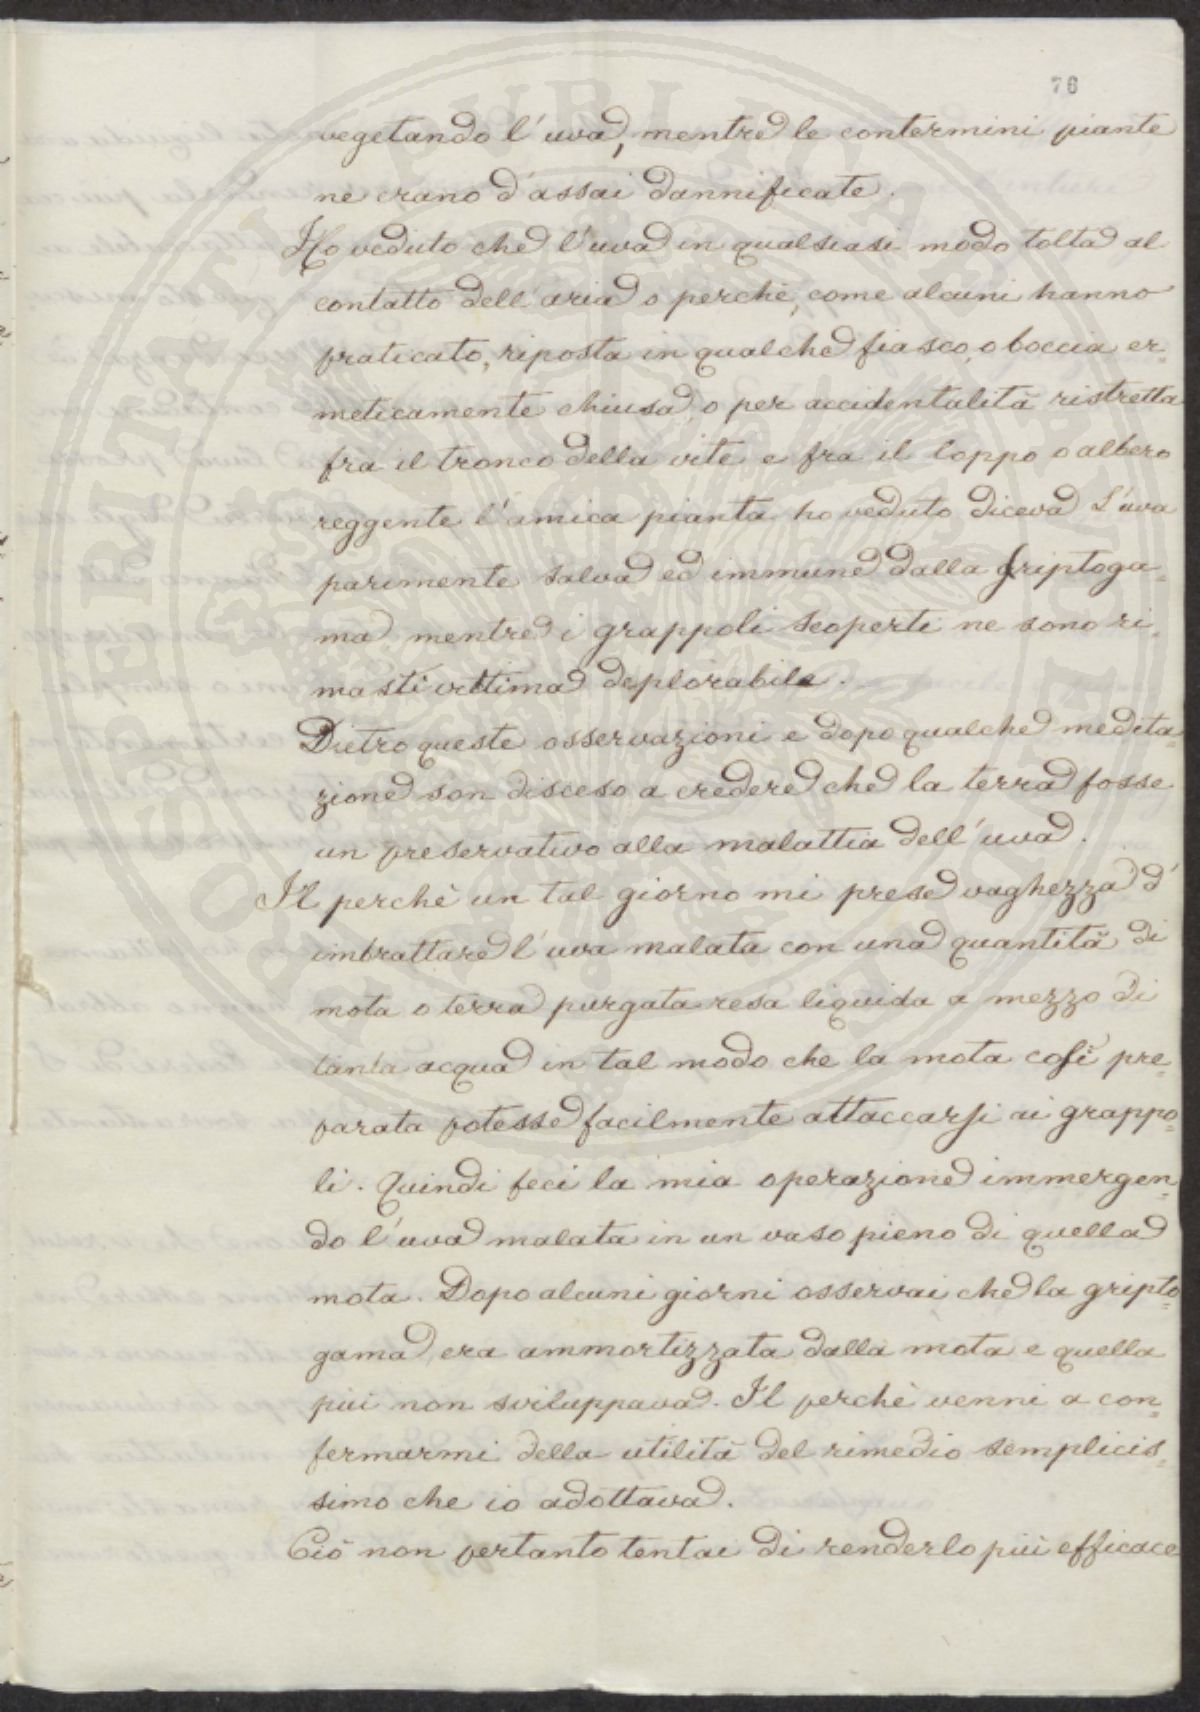 76
vegetando l'uva, mentre le contermini piante
ne erano d'assai dannificate.
Ho veduto che l'uva in qualsiasi modo tolta al
contatto dell'aria o perchè, come alcuni hanno
praticato, riposta in qualche fiasco, o boccia er=
meticamente chiusa, o per accidentalità ristretta
fra il tronco della vite e fra il loppo o albero
reggente l'amica pianta ho veduto diceva l'uva
parimente salva ed immune dalla griptoga=
ma mentre i grappoli scoperti ne sono ri=
masti vittima deplorabile.
Dietro queste osservazioni e dopo qualche medita=
zione son disceso a credere che la terra fosse
un preservativo alla malattia dell'uva.
Il perchè un tal giorno mi prese vaghezza d'
imbrattare l'uva malata con una quantità di
mota o terra purgata resa liquida a mezzo di
tanta acqua in tal modo che la mota così pre=
parata potesse facilmente attaccarsi ai grappo=
li. Quindi feci la mia operazione immergen=
do l'uva malata in un vaso pieno di quella
mota. Dopo alcuni giorni osservai che la gripto=
gama era ammortizzata dalla mota e quella
più non sviluppava. Il perchè venni a con=
fermarmi della utilità del rimedio semplicis=
simo che io adottava.
Ciò non pertanto tentai di renderlo più efficace
PROSPERITATI PUBLICAE AUGENDAE